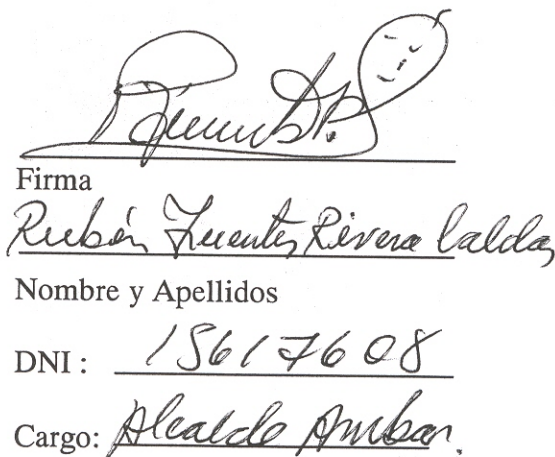 Firma
Rubén Fuentes Rivera Caldas
Nombre y Apellidos
DNI : 15617608
Cargo: Alcalde Ambar.